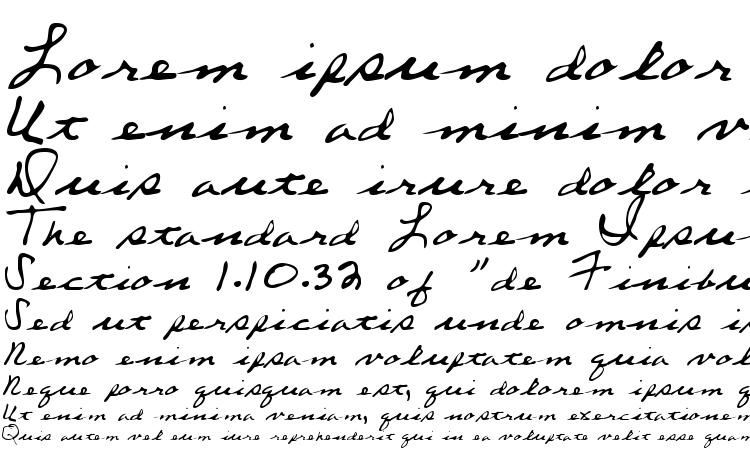 Lorem ipsum dolor
Ut enim ad minim
Duis aute irure dolor
The standard Lorem Ipsu
Section 1.10.32 of "de Finibu
Sed ut perspiciatis unde omnis
Nemo enim ipsam voluptatem quia vol
Neque porro quisquam est, qui dolorem ipsum q
Ut enim ad minima veniam, quis nostrum exercitationem
Quis autem vel eum iure reprehenderit qui in ea voluptate velit esse quam